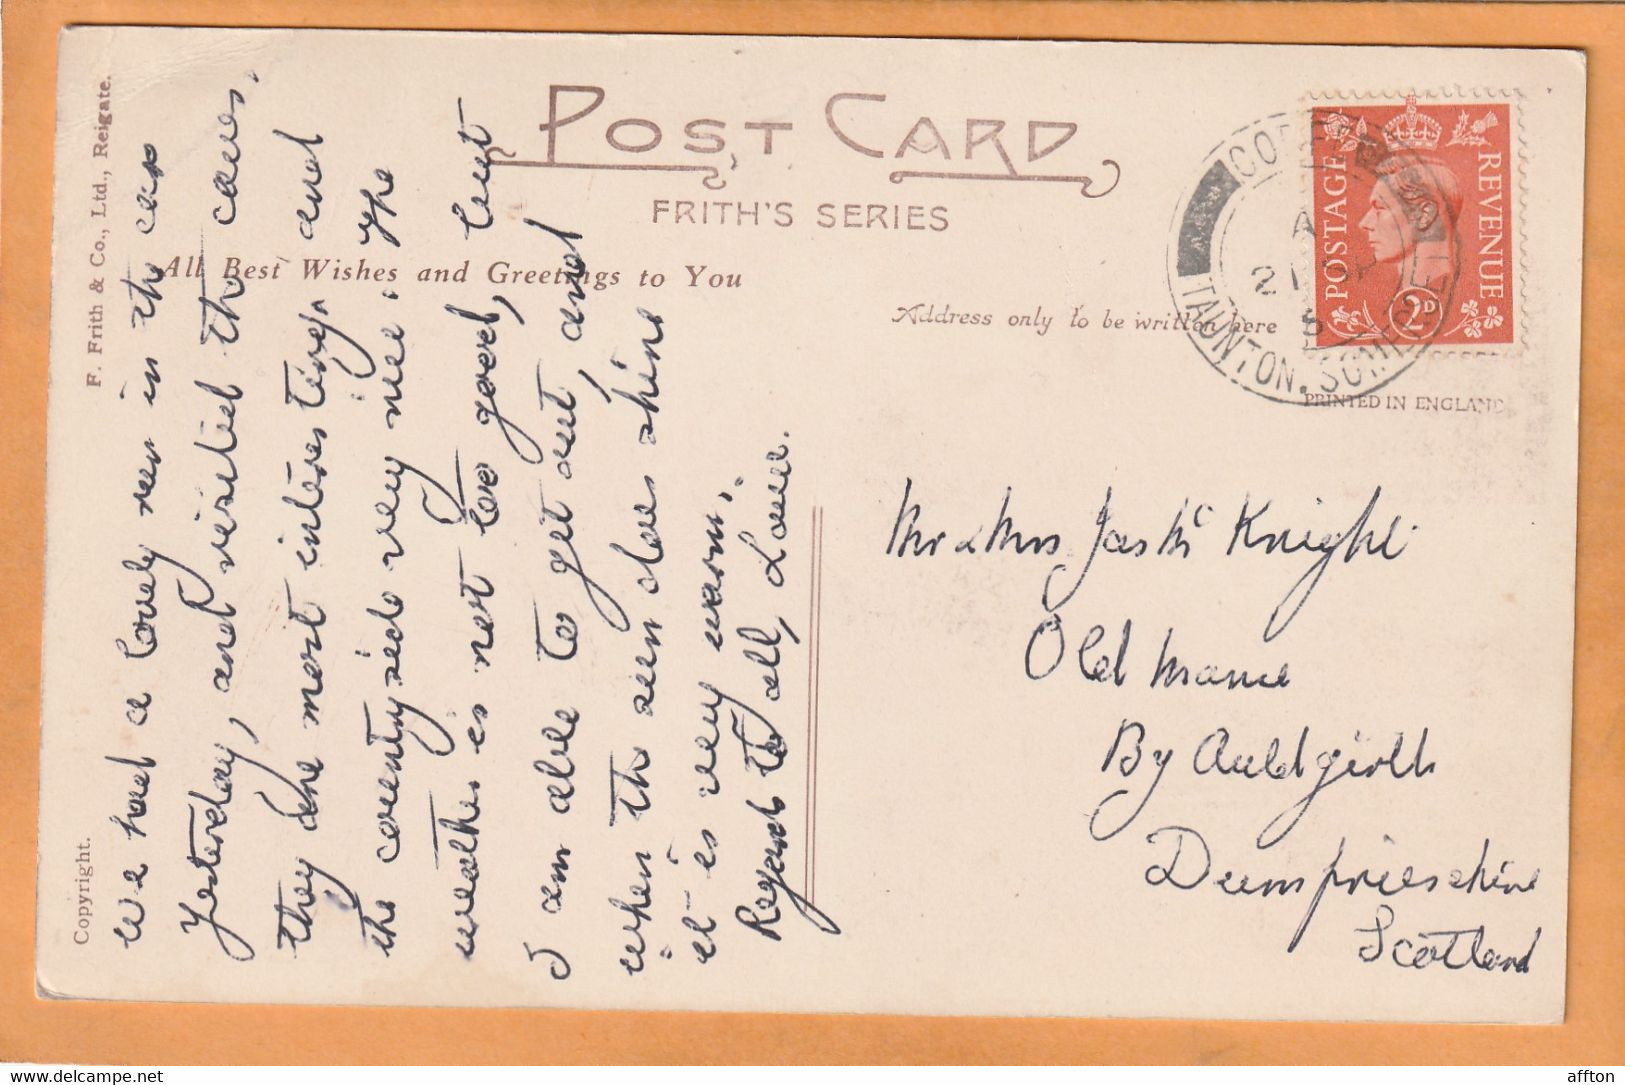 POST CARD
FRITH'S SERIES
All Best Wishes and Greetings to You
Address only to be written here
PRINTED IN ENGLAND
F. Frith & Co., Ltd., Reigate.
Copyright.
POSTAGE
REVENUE
2D
TAUNTON. SOMERSET
We had a lovely run in the car
Yesterday, and visited the caves,
they are most interesting and
the countryside very nice. The
weather is not too good, but
I am able to get out, and
when the sun does shine
it is very warm.
Regards to all, Louie.
Mr & Mrs Jas Mc Knight
Old Manse
By Auldgirth
Dumfriesshire
Scotland
affton